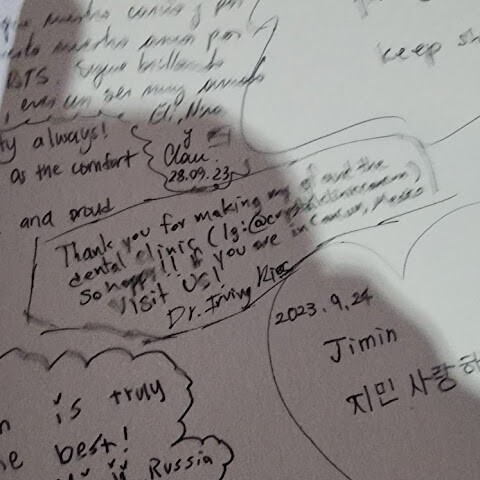 mucho cariño y por
mucho amor por
BTS. Sigue brillando
, eres un ser muy
Eli, Nao
y
Clau.
28.09.23
keep sh
ty always!
as the comfort
and proud
Thank you for making my gf and the
dental clinic (Ig: @
So happy!! If you are in Cancun, Mexico
Visit Us!
Dr. Irving Rios
2023.9.24
Jimin
지민 사랑하
is truly
he best!
Russia